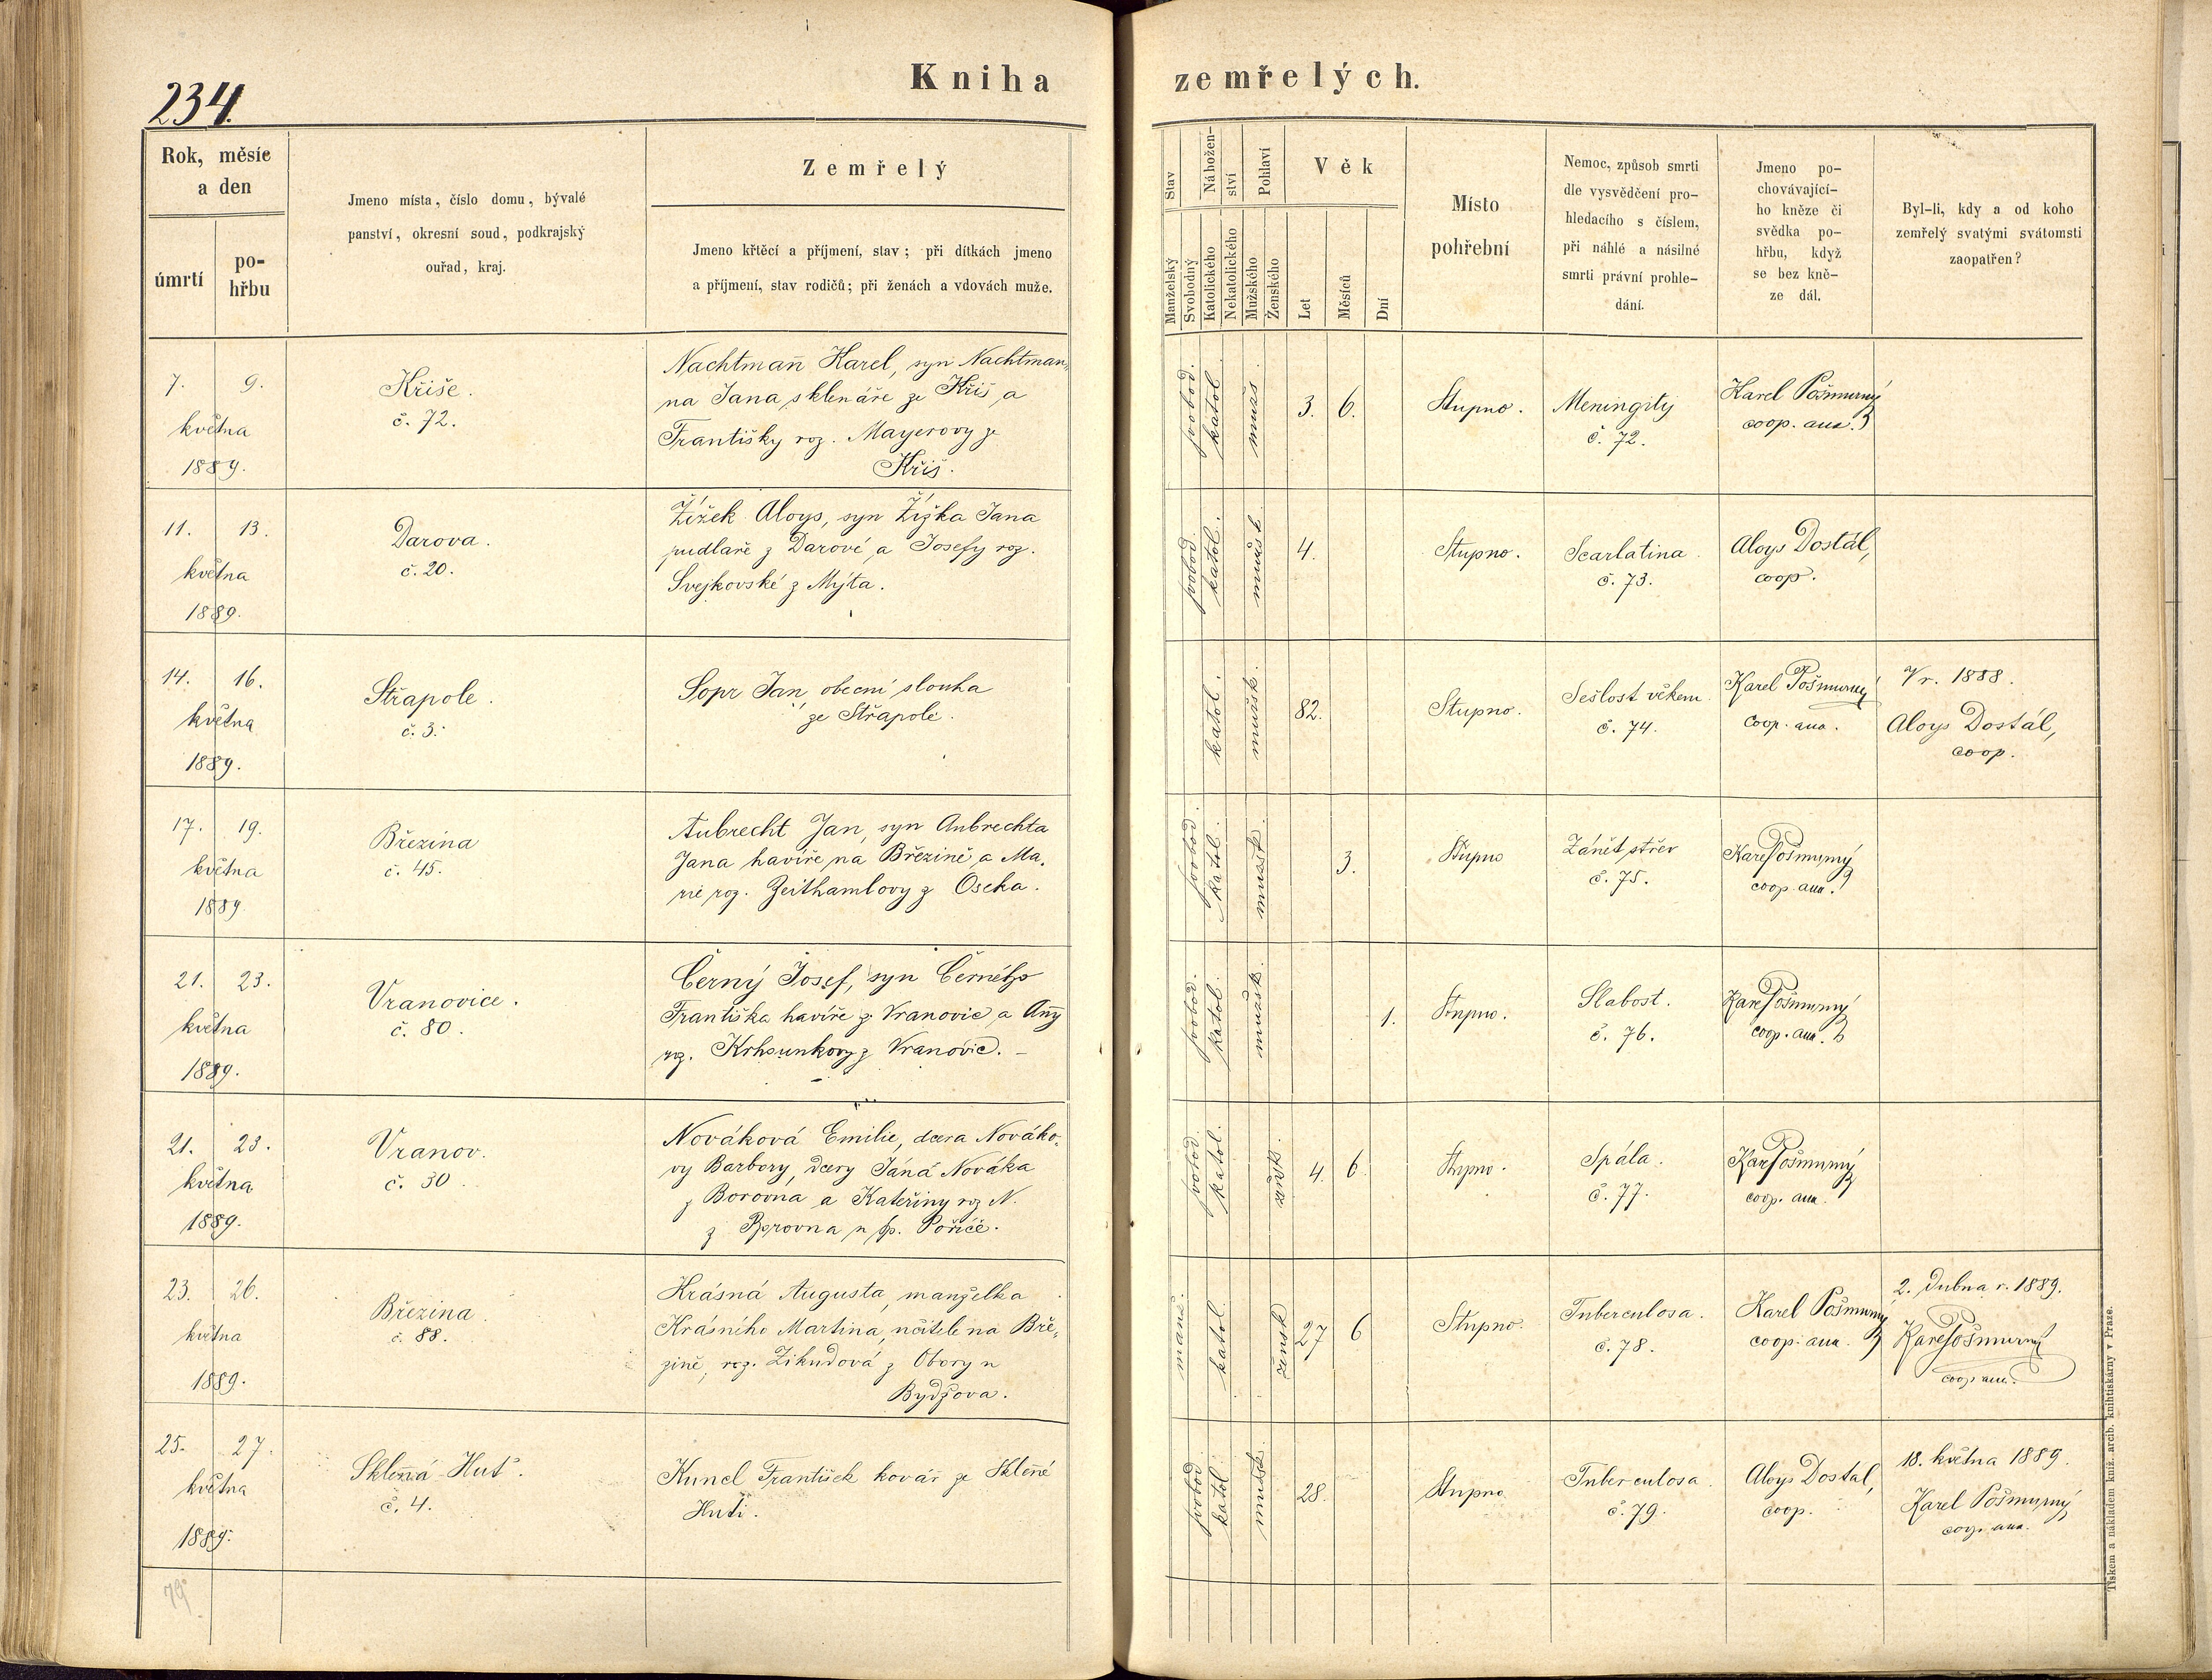 234.
Kniha zemřelých.
Rok, měsíc
a den
úmrtí
po-
hřbu
Jmeno místa, číslo domu, bývalé
panství, okresní soud, podkrajský
ouřad, kraj.
Zemřelý
Jmeno křtěcí a příjmení, stav; při dítkách jmeno
a příjmení, stav rodičů; při ženách a vdovách muže.
Stav
Manželský
Svobodný
Nábožen-
ství
Katolického
Nekatolického
Pohlaví
Mužského
Ženského
Věk
Let
Měsíců
Dní
Místo
pohřební
Nemoc, způsob smrti
dle vysvědčení pro-
hledacího s číslem,
při náhlé a násilné
smrti právní prohle-
dání.
Jmeno po-
chovávající-
ho kněze či
svědka po-
hřbu, když
se bez kně-
ze dál.
Byl-li, kdy a od koho
zemřelý svatými svátostmi
zaopatřen?
7. 9.
května
1889.
Kříše.
č. 72.
Nachtmann Karel, syn Nachtman-
na Jana, sklenáře ze Kříš a
Františky roz. Mayerovy ze
Kříš.
svobod.
katol.
mužs.
3. 6.
Stupno.
Meningitis
č. 72.
Karel Pošmurný
coop. aux.
11. 13.
května
1889.
Darova.
č. 20.
Žížek Aloys, syn Žížka Jana
pudlaře z Darové, a Josefy roz.
Svejkovské z Mýta.
svobod.
katol.
mužsk.
4.
Stupno.
Scarlatina.
č. 73.
Aloys Dostál,
coop.
14. 16.
května
1889.
Střapole.
č. 3.
Sopr Jan, obecní slouha
ze Střapole.
katol.
mužsk.
82.
Stupno.
Sešlost věkem.
č. 74.
Karel Pošmurný
coop. aux.
V r. 1888.
Aloys Dostál,
coop.
17. 19.
května
1889.
Březina
č. 45.
Aubrecht Jan, syn Aubrechta
Jana havíře na Březině a Ma-
rie roz. Zeithamlovy z Oseka.
svobod.
katol.
mužsk.
3.
Stupno
Zánět střev
č. 75.
Karel Pošmurný
coop. aux.
21. 23.
května
1889.
Vranovice.
č. 80.
Černý Josef, syn Černého
Františka havíře z Vranovic a Anny
roz. z Vranovic.
svobod.
katol.
mužsk.
1.
Stupno.
Slabost.
č. 76.
Karel Pošmurný
coop. aux.
21. 23.
května
1889.
Vranov.
č. 30.
Nováková Emilie, dcera Nováko-
vy Barbory, dcery Jána Nováka
z Borovna a Kateřiny roz N.
z Borovna u Sp. Poříčí.
svobod.
katol.
žensk.
4. 6.
Stupno.
Spála.
č. 77.
Karel Pošmurný
coop. aux.
23. 26.
května
1889.
Březina.
č. 88.
Krásná Augusta, manželka
Krásného Martina, učitele na Bře-
zině, roz. Zikudová z Obory u
Bydžova.
manž.
katol.
žensk
27 6
Stupno.
Tuberculosa.
č. 78.
Karel Pošmurný
coop. aux.
2. dubna r. 1889.
Karel Pošmurný
coop. aux.
25. 27.
května
1889.
Sklenná Huť.
č. 4.
Kuncl František kovář ze Sklené
Huti.
svobod
katol.
mužsk.
28.
Stupno
Tuberculosa.
č. 79.
Aloys Dostal,
coop.
18. května 1889.
Karel Pošmurný
coop. aux.
79
Tiskem a nákladem kníž. arcib. knihtiskárny v Praze.